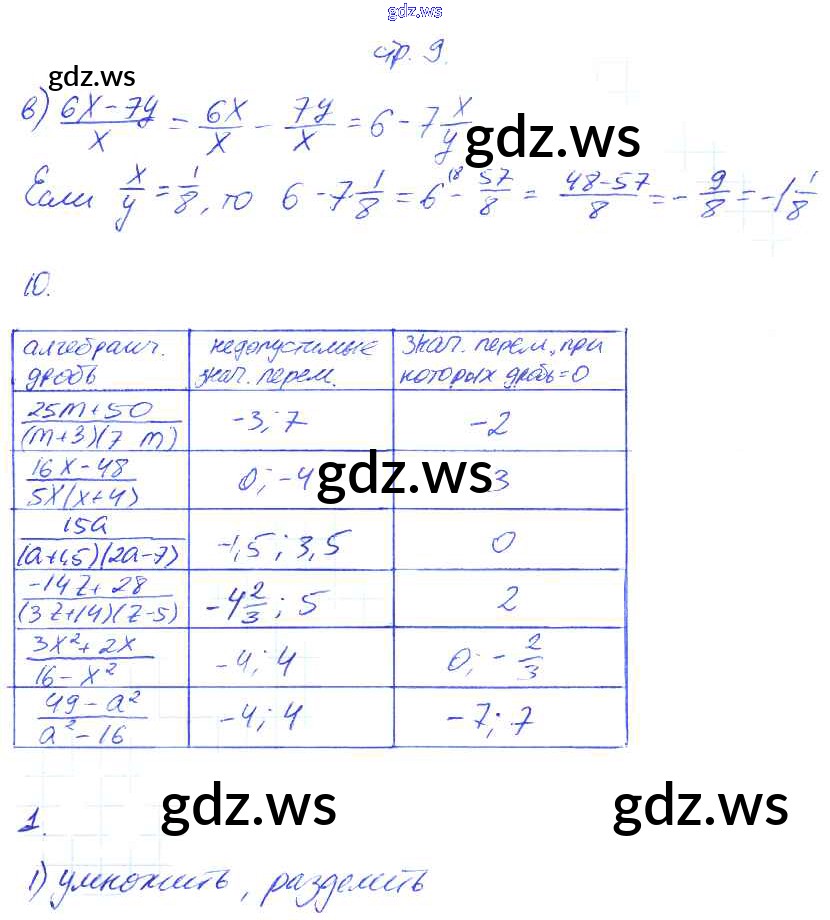 gdz.ws
стр. 9.
gdz.ws
в) (6x-7y)/x = 6x/x - 7y/x = 6 - 7 x/y
gdz.ws
Если x/y = 1/8, то 6 - 7 1/8 = 6 - 57/8 = (48-57)/8 = -9/8 = -1 1/8
10.
алгебраич. дробь | недопустимые знач. перем. | знач. перем., при которых дробь=0
(25m+50)/((m+3)(7 m)) | -3; 7 | -2
(16x-48)/(5x(x+4)) | 0; -4 | 3
gdz.ws
15a/((a+1,5)(2a-7)) | -1,5; 3,5 | 0
(-14z+28)/((3z+14)(z-5)) | -4 2/3; 5 | 2
(3x²+2x)/(16-x²) | -4; 4 | 0; -2/3
(49-a²)/(a²-16) | -4; 4 | -7; 7
gdz.ws gdz.ws
1.
1) умножить, разделить